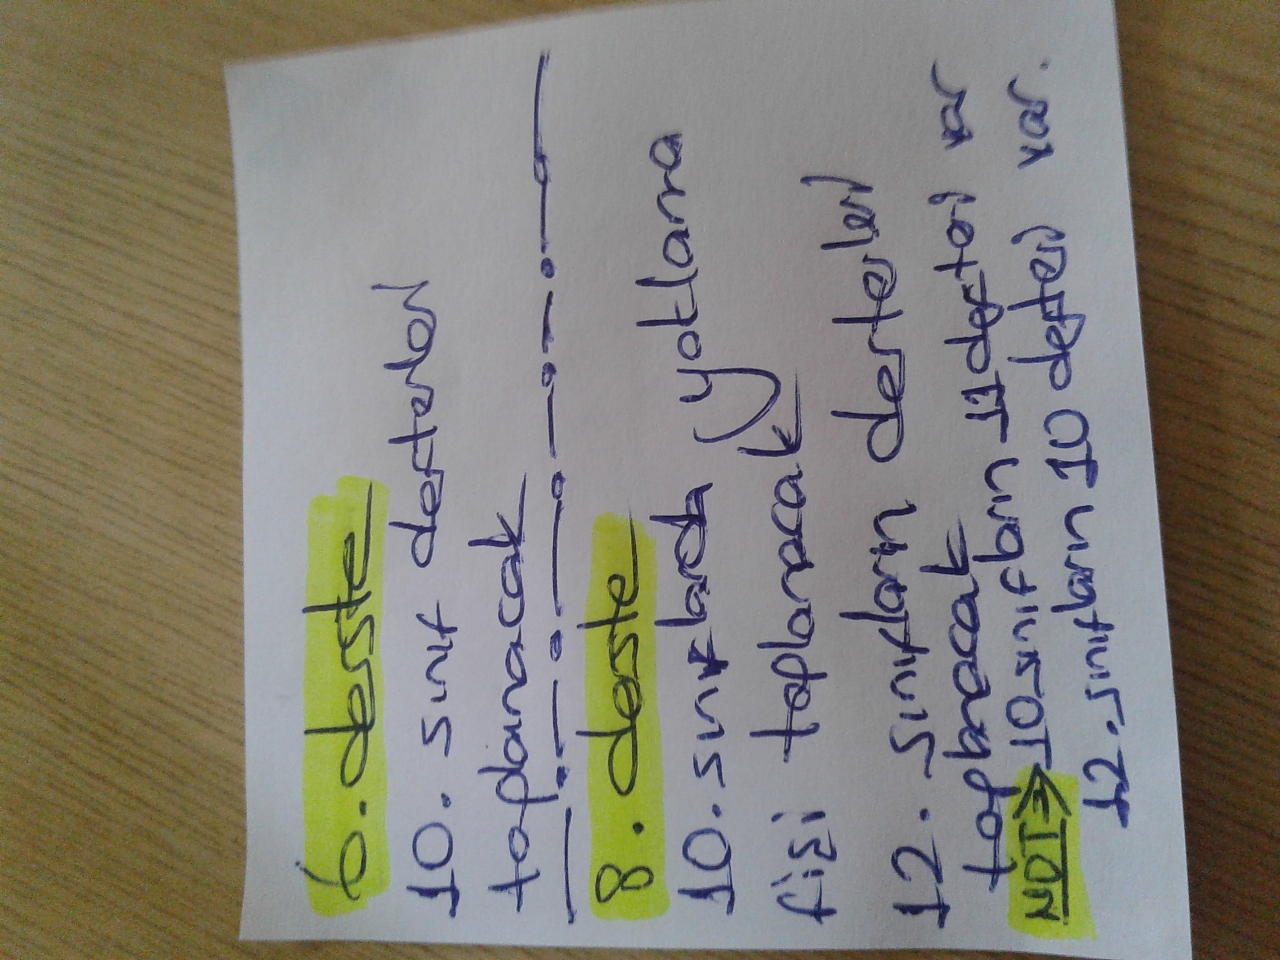 6. derste
10. sınıf defterleri
toplanacak
8. derste
10. sınıflarda yoklama
fişi toplanacak
12. sınıfların defterleri
toplanacak
NOT: 10 sınıfların 11 defteri var
12. sınıfların 10 defteri var.